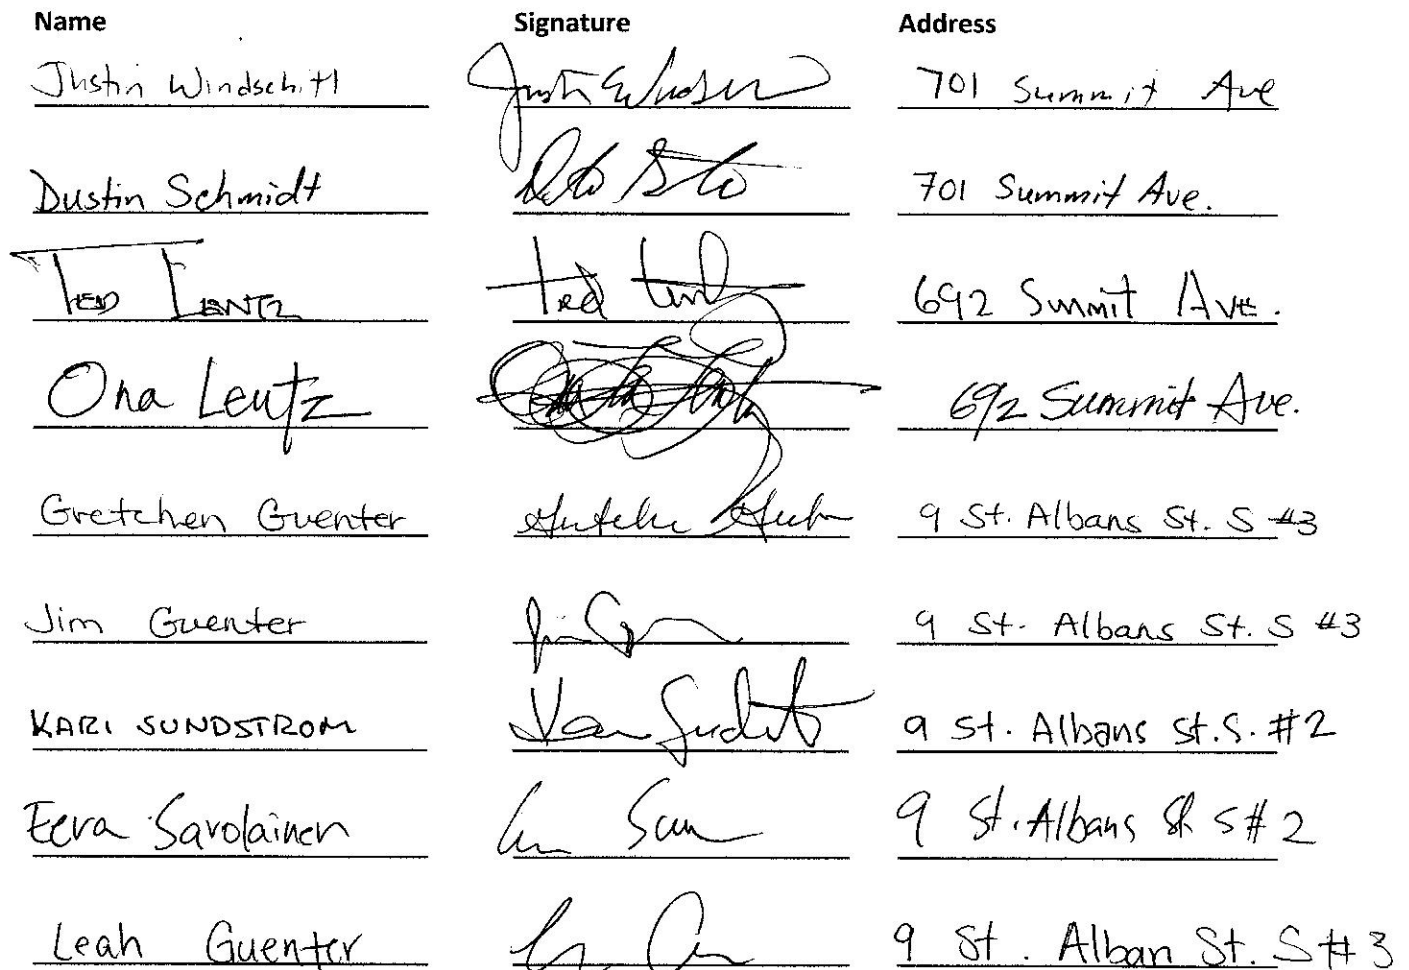 Name Signature Address
Justin Windschitl 701 Summit Ave
Dustin Schmidt 701 Summit Ave.
TED LENTZ Ted Lentz 692 Summit Ave.
Ona Lentz 692 Summit Ave.
Gretchen Guenter 9 St. Albans St. S #3
Jim Guenter 9 St. Albans St. S #3
KARI SUNDSTROM 9 St. Albans St. S. #2
Eeva Savolainen 9 St. Albans St S # 2
Leah Guenter 9 St. Alban St. S # 3